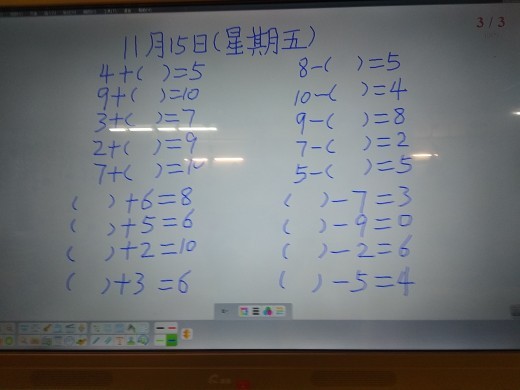 3/3
11月15日(星期五)
4+( )=5 8-( )=5
9+( )=10 10-( )=4
3+( )=7 9-( )=8
2+( )=9 7-( )=2
7+( )=10 5-( )=5
( )+6=8 ( )-7=3
( )+5=6 ( )-9=0
( )+2=10 ( )-2=6
( )+3=6 ( )-5=4